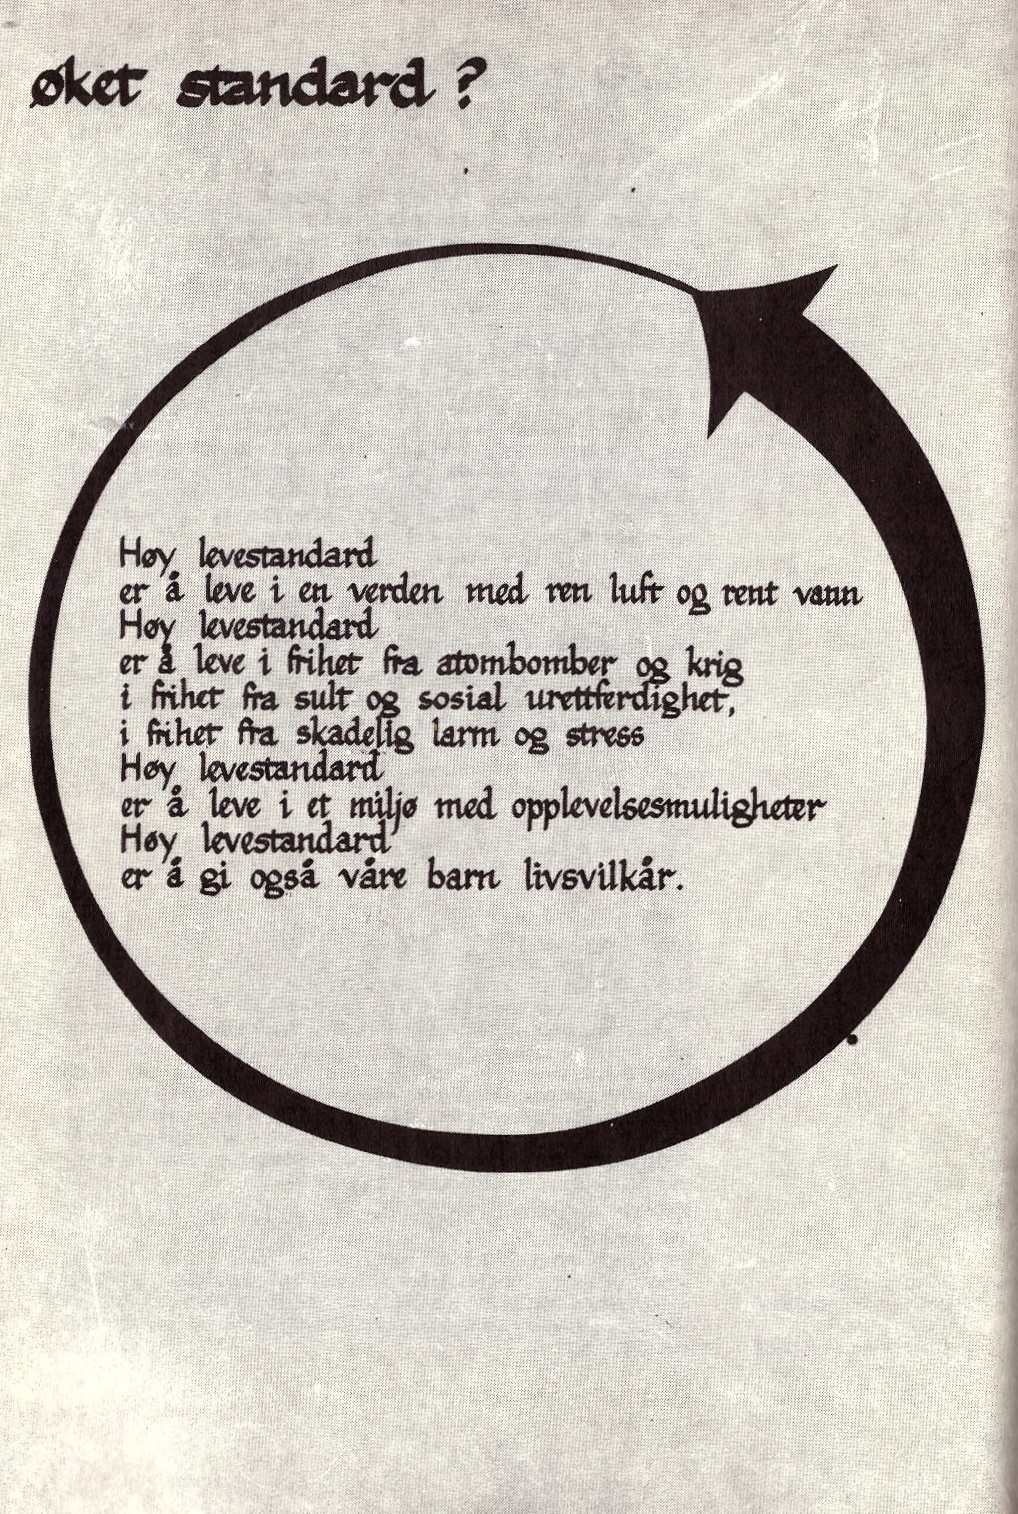 øket standard ?
Høy levestandard
er å leve i en verden med ren luft og rent vann
Høy levestandard
er å leve i frihet fra atombomber og krig
i frihet fra sult og sosial urettferdighet,
i frihet fra skadelig larm og stress
Høy levestandard
er å leve i et miljø med opplevelsesmuligheter
Høy levestandard
er å gi også våre barn livsvilkår.